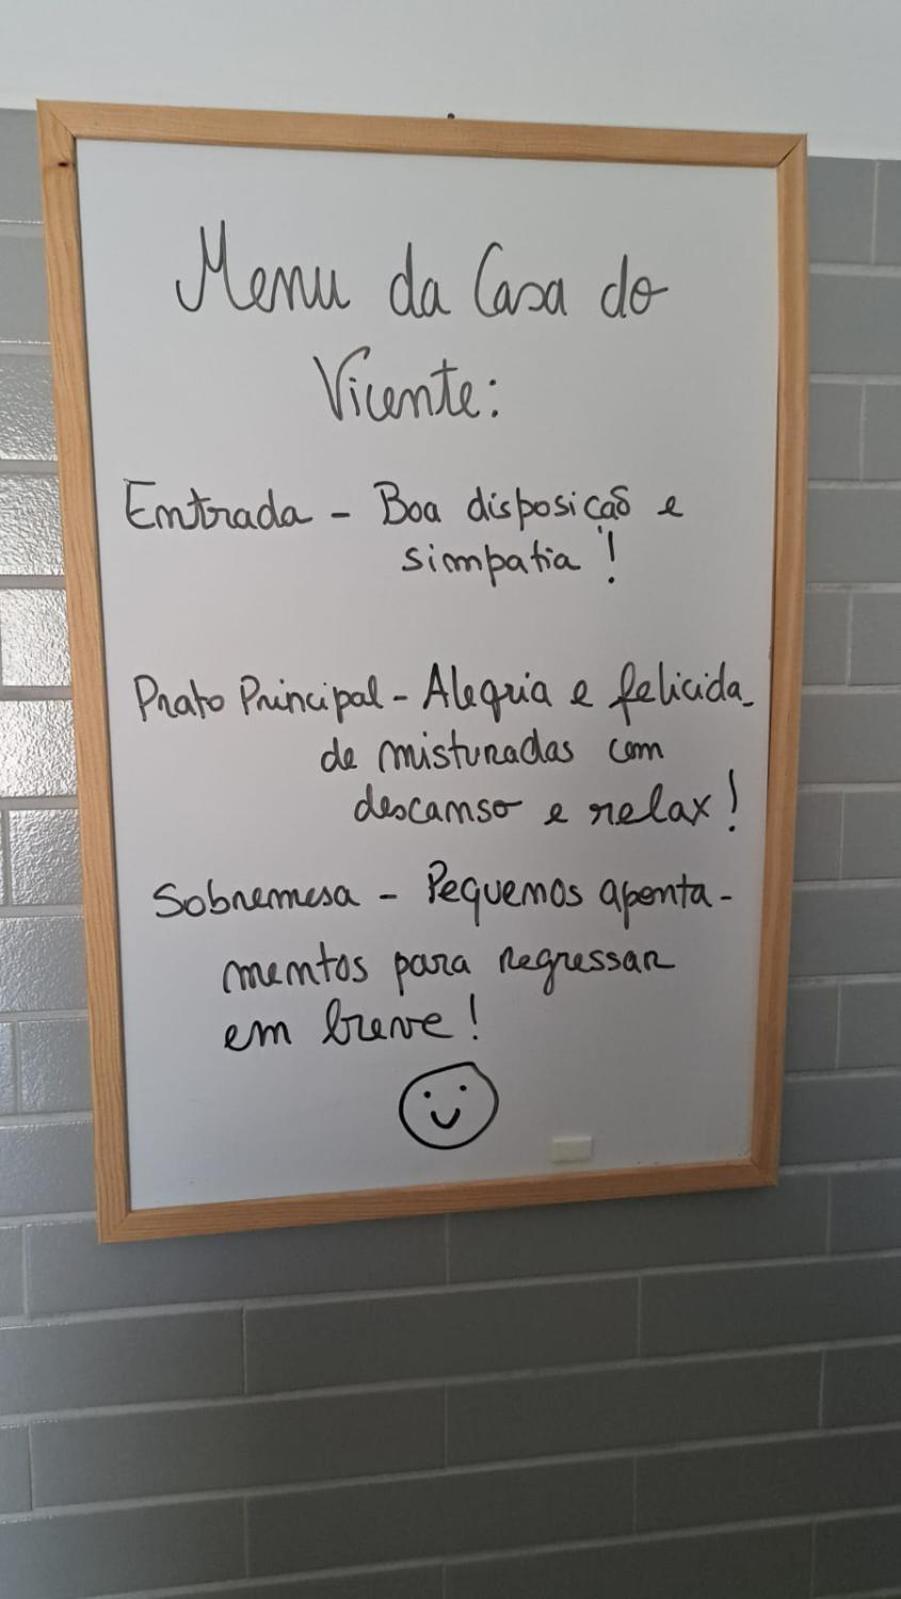 Menu da Casa do
Vicente:
Entrada - Boa disposição e
simpatia!
Prato Principal - Alegria e felicida-
de misturadas com
descanso e relax!
Sobremesa - Pequenos aponta-
mentos para regressar
em breve!